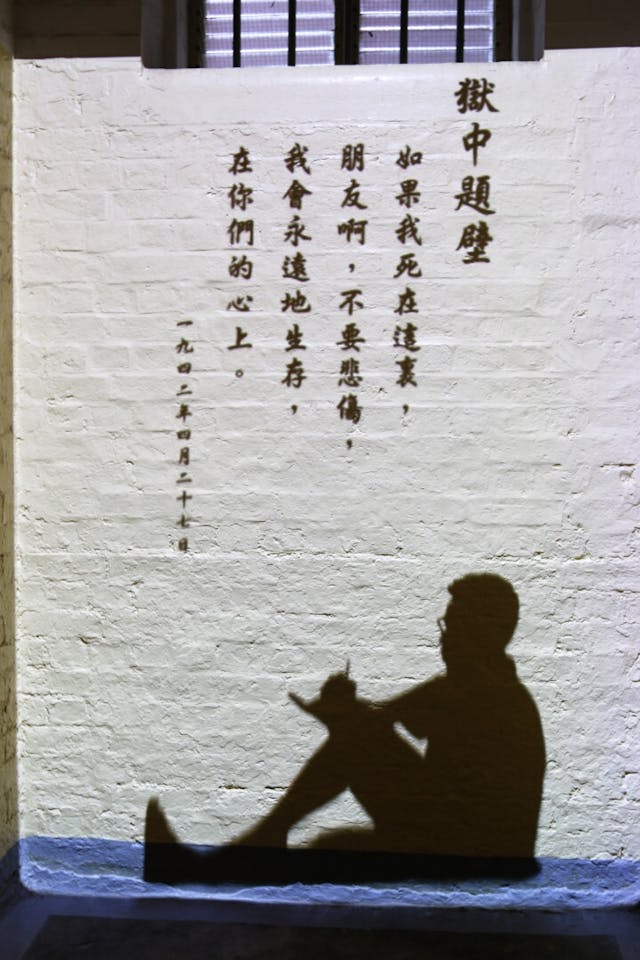 獄中題壁
如果我死在這裏，
朋友啊，不要悲傷，
我會永遠地生存，
在你們的心上。
一九四二年四月二十七日